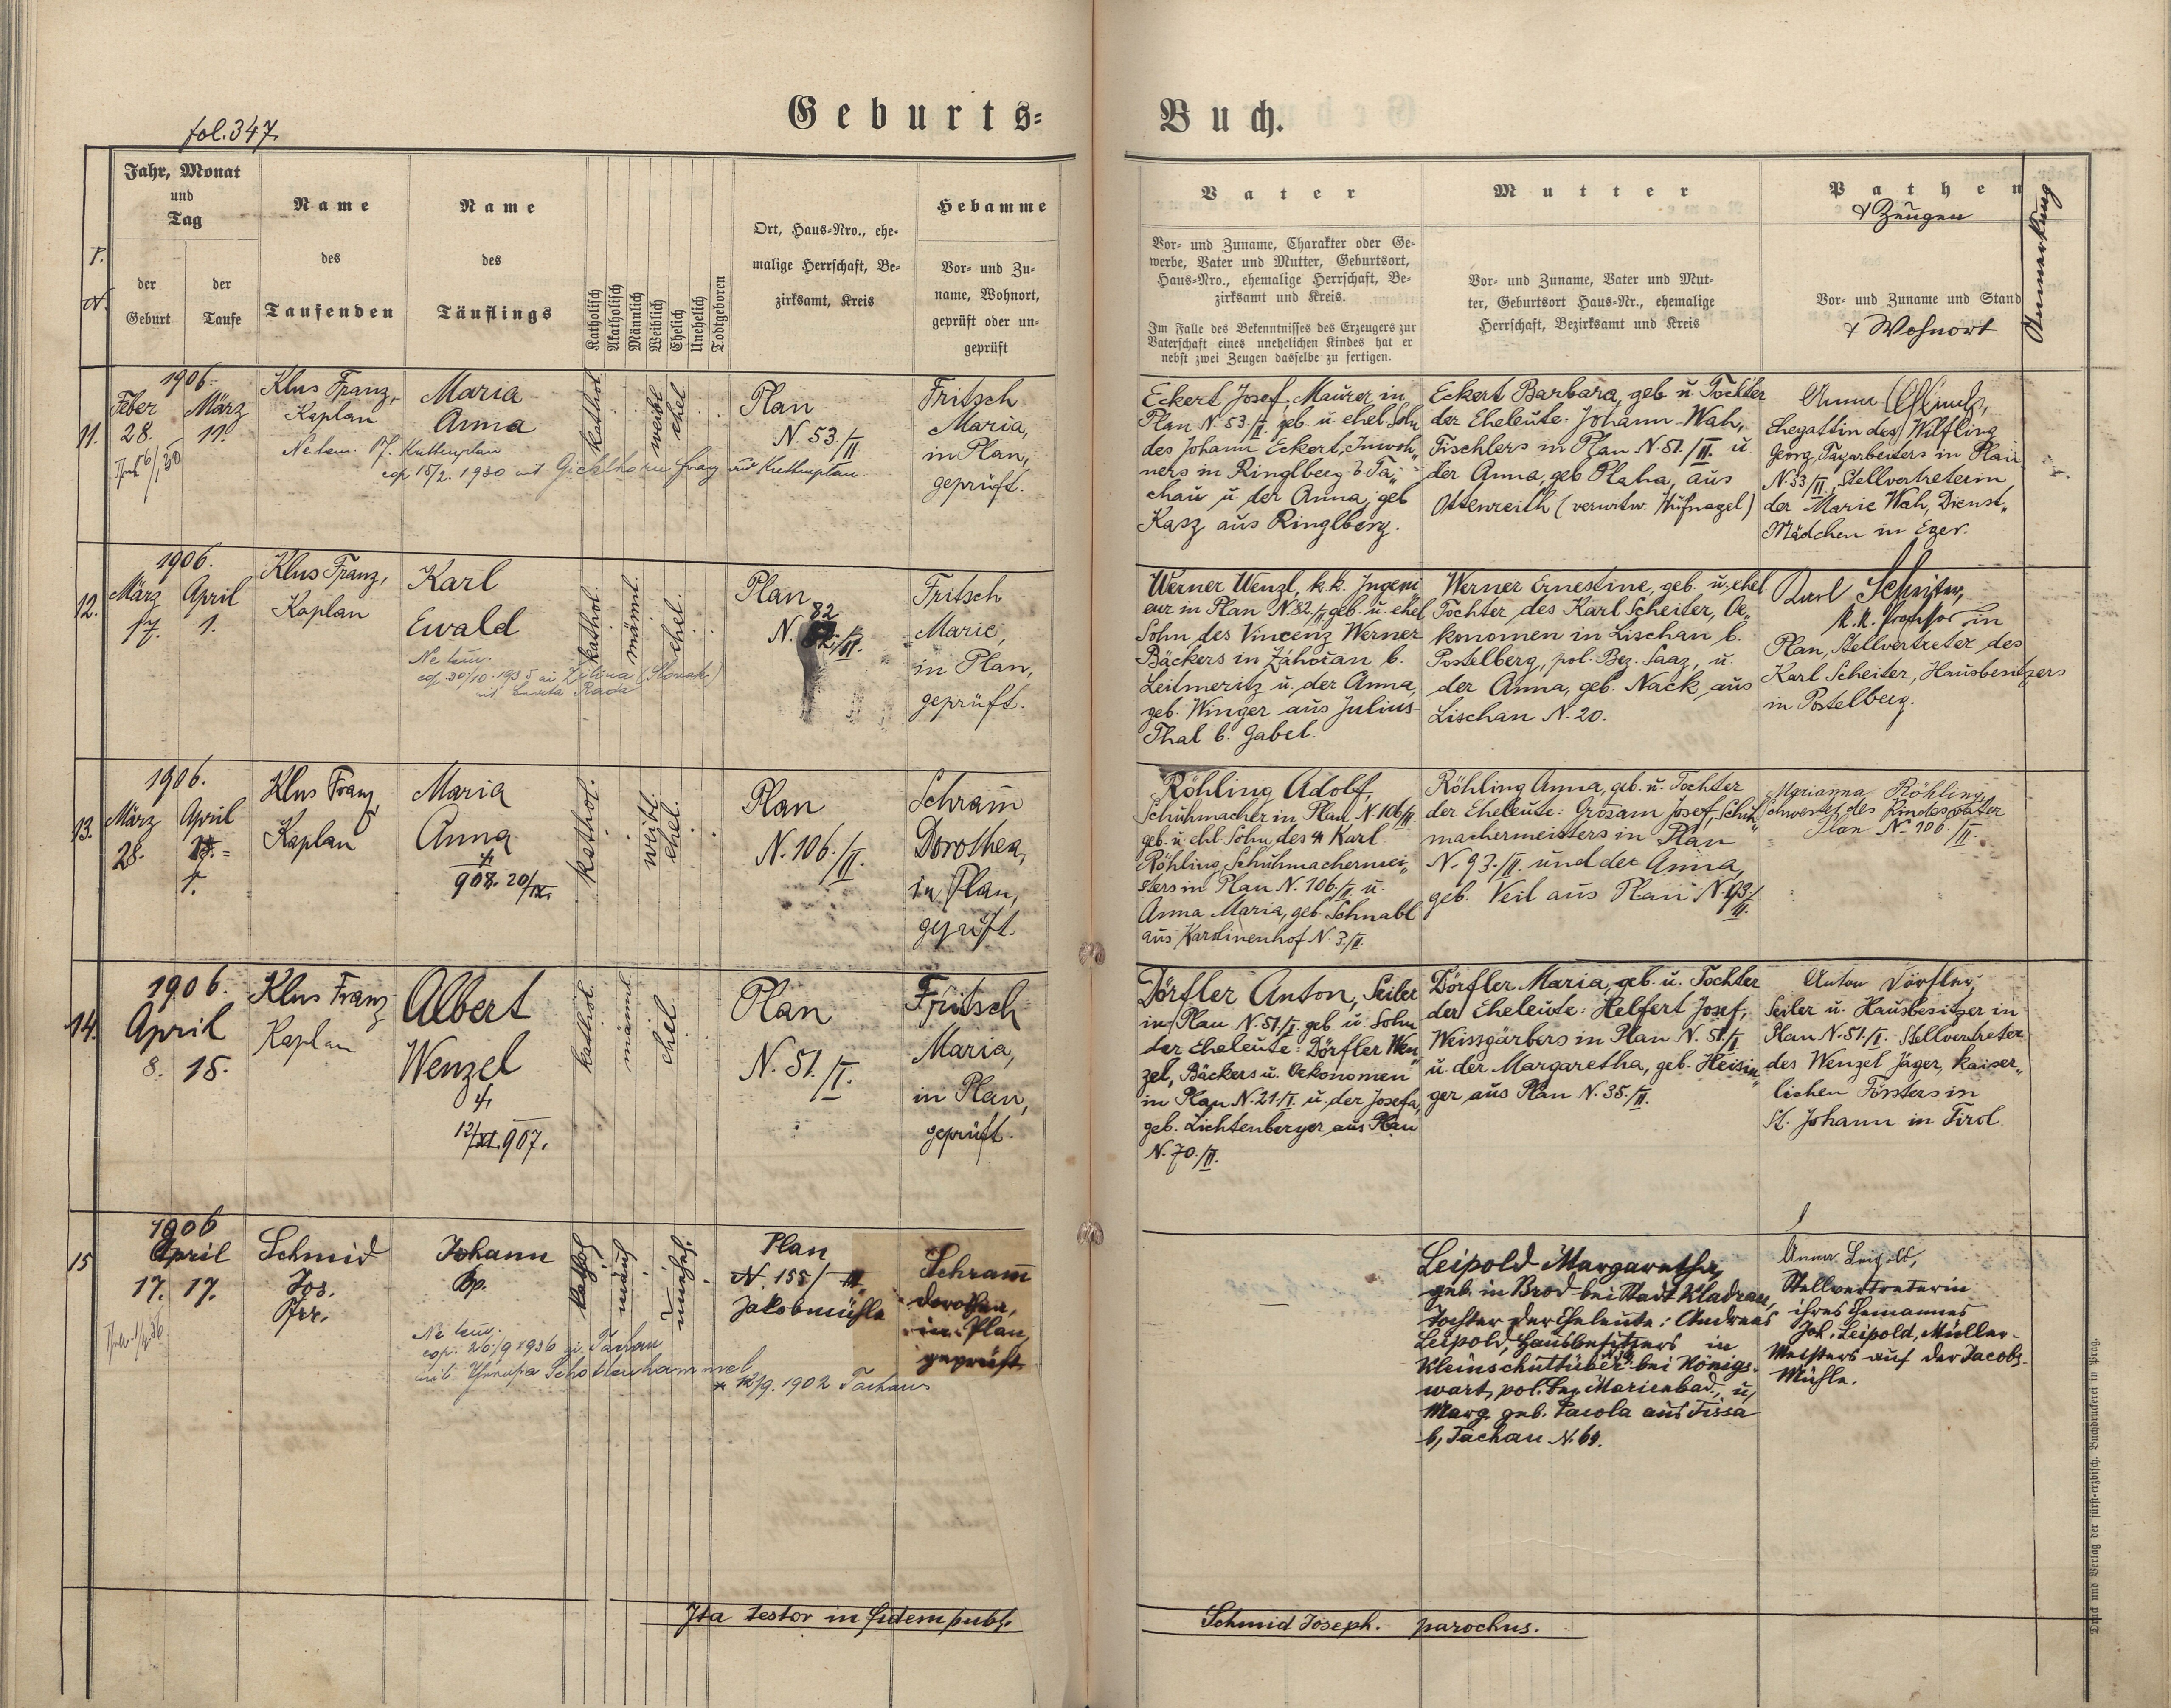 fol. 347.
Geburts=
Buch.
P.
N.
Jahr, Monat
und
Tag
der
Geburt
der
Taufe
Name
des
Taufenden
Name
des
Täuflings
Katholisch
Akatholisch
Männlich
Weiblich
Ehelich
Unehelich
Todtgeboren
Ort, Haus-Nro., ehe-
malige Herrschaft, Be-
zirksamt, Kreis
Hebamme
Vor- und Zu-
name, Wohnort,
geprüft oder un-
geprüft
Vater
Vor- und Zuname, Charakter oder Ge-
werbe, Vater und Mutter, Geburtsort,
Haus-Nro., ehemalige Herrschaft, Be-
zirksamt und Kreis.
Im Falle des Bekenntnisses des Erzeugers zur
Vaterschaft eines unehelichen Kindes hat er
nebst zwei Zeugen dasselbe zu fertigen.
Mutter
Vor- und Zuname, Vater und Mut-
ter, Geburtsort Haus-Nr., ehemalige
Herrschaft, Bezirksamt und Kreis
Pathen
& Zeugen
Vor- und Zuname und Stand
& Wohnort
Anmerkung
11.
1906.
Feber
28.
März
11.
Klus Franz,
Kaplan
Maria
Anna
Ne tem. Kuttenplan
cop 15/2. 1930 mit Franz aus Kuttenplan.
kathol.
weibl.
ehel.
Plan
N. 53./II
Fritsch
Maria,
in Plan,
geprüft.
Eckert Josef, Maurer in
Plan N. 53./II. geb. u. ehel. Sohn
des Johann Eckert, Inwoh„
ners in Ringlberg b. Ta„
chau u. der Anna, geb
Kasz aus Ringlberg.
Eckert Barbara, geb. u. Tochter
der Eheleute: Johann Wah,
Tischlers in Plan N 51./II. u.
der Anna, geb. Plaha, aus
Ottenreith (verwitw. Hüfnagel)
Anna
Ehegattin des Wilfling
Georg, Tagarbeiters in Plan
N. 53/II., Stellvertreterin
der Marie Wah, Dienst„
Mädchen in Eger.
12.
1906.
März
17.
April
1.
Klus Franz,
Kaplan
Karl
Ewald
Ne tem.
cop 30/10. 1935 in Žilina (Slovak.)
mit Rada
kathol.
männl.
ehel.
Plan
82
N. /II.
Fritsch
Marie,
in Plan,
geprüft.
Werner Wenzl, k. k. Ingeni
eur in Plan N. 82./II, geb. u. ehel
Sohn des Vincenz Werner
Bäckers in Záhořan b.
Leitmeritz u. der Anna,
geb. Winger aus Julius-
Thal b. Gabel.
Werner Ernestine, geb. u. ehel
Tochter des Karl Scheiter, Oe„
konomen in Lischan b.
Postelberg, pol. Bez. Saaz, u.
der Anna, geb. Nack aus
Lischan N. 20.
Karl Scheiter,
k. k. Professor in
Plan, Stellvertreter des
Karl Scheiter, Hausbesitzers
in Postelberg.
13.
1906.
März
28.
April
1.
Klus Franz
Kaplan
Maria
Anna
†
908. 20/IX.
kathol.
weibl.
ehel.
Plan
N. 106./II.
Schram̄
Dorothea,
in Plan,
geprüft.
Röhling Adolf,
Schuhmacher in Plan N. 106/II
geb. u. ehl. Sohn des † Karl
Röhling, Schuhmachermei„
sters in Plan N. 106./II u.
Anna Maria, geb. Schnabl
aus Karolinenhof N. 3./II.
Röhling Anna, geb. u. Tochter
der Eheleute: Grosam Josef, Schuh„
machermeisters in Plan
N. 93./II. und der Anna,
geb. Veil aus Plan N. 93./
II.
Marianna Röhling,
Schwester des Kindesvater
Plan N. 106./II.
14.
1906.
April
8. 15.
Klus Franz
Kaplan
Albert
Wenzel
†
12/XI. 907.
kathol.
männl.
ehel.
Plan
N. 51./I.
Fritsch
Maria,
in Plan,
geprüft.
Dörfler Anton, Seiler
in Plan N. 51./I. geb. u. Sohn
der Eheleute: Dörfler Wen„
zel, Bäckers u. Oekonomen
in Plan N. 21./I. u. der Josefa,
geb. Lichtenberger aus Plan
N. 70./II.
Dörfler Maria, geb. u. Tochter
der Eheleute: Helfert Josef,
Weissgärbers in Plan N. 51./I
u. der Margaretha, geb. Heisin„
ger aus Plan N. 35./II.
Anton Dörfler,
Seiler u. Hausbesitzer in
Plan N. 51./I. Stellvertreter
des Wenzel Jäger, kaiser„
lichen Försters in
St. Johann in Tirol
15
1906
April
17. 17.
Schmid
Jos.
Pfr.
Johann
Bp.
Ne tem.
cop. 26/9 1936 in Tachau
mit Schottenhammel
* 12/9. 1902 Tachau
kathol.
männl.
unehel.
Plan
N. 155/
Jakobmühle
Schram̄
Dorothea,
in Plan,
geprüft
Leipold Margaretha,
geb. in Brod bei Stadt Kladrau,
Tochter der Eheleute: Andreas
Leipold, Hausbesitzers in
Kleinschüttüber bei Königs-
wart, pol. Bez. Marienbad, u,
Marg. geb. aus Tissa
b, Tachau N. 69.
Anna Leipold,
Stellvertreterin
ihres Ehemannes
Joh. Leipold, Müller-
Meisters auf der Jacobs-
Mühle.
Ita testor in fidem publ.
Schmid Joseph. parochus.
Druck und Verlag der fürst-erzbisch. Buchdruckerei in Prag.